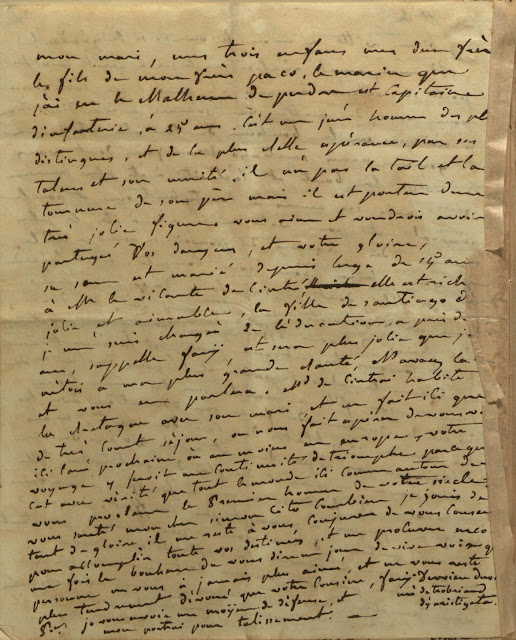 mon mari, mes trois enfans mes deux frères
le fils de mon frère paco, le marin que
j'ai eu le Malheur de perdre est Capitaine
d'infanterie, à 25 ans. C'est un jeune homme des pl
distingués, et de la plus belle espérance, par ses
talens et son mérite, il n'a pas la tail et la
tournure de son père mais il est porteur d'une
très jolie figure, vous aime et voudrois avoir
partagé vos dangers, et votre gloire,
sa sœur est mariée depuis l'age de 15 ans
à Mr le vicomte de elle est riche
jolie et aimable, la fille de santiago
je me suis chargée de l'éducation, a près de
ans, s'appelle fanny est sera plus jolie que je
n'étois à mon plus grande
et vous en parlera. Md de habite
la Bretagne avec son mari, et ne fait ici que
de très court séjour, on nous fait espérer de vous voir
ici l'ané prochaine ou au moins en europe, votre
voyage y seroit une continuité de triomphe parceque
c'est avec vérité que tout le monde ici commence
vous proclamer le premier homme de votre siècle
vous mon cher simon Cito Combien je jouis de
tant de gloire, il me reste à vous, conjurer de vous conser
pour accomplir toute vos destinés, et me procurer enco
une fois le bonheur de vous dire un jour de vive voix q
personne ne vous à jamais plus aimé, et ne vous reste
plus tendrement dévoué que votre Cousine, fanny Dervieu du
P.S. je vous envoie un moyen de défense, et né de trobriand
mon portrait pour talissement. d'aristiguieta.